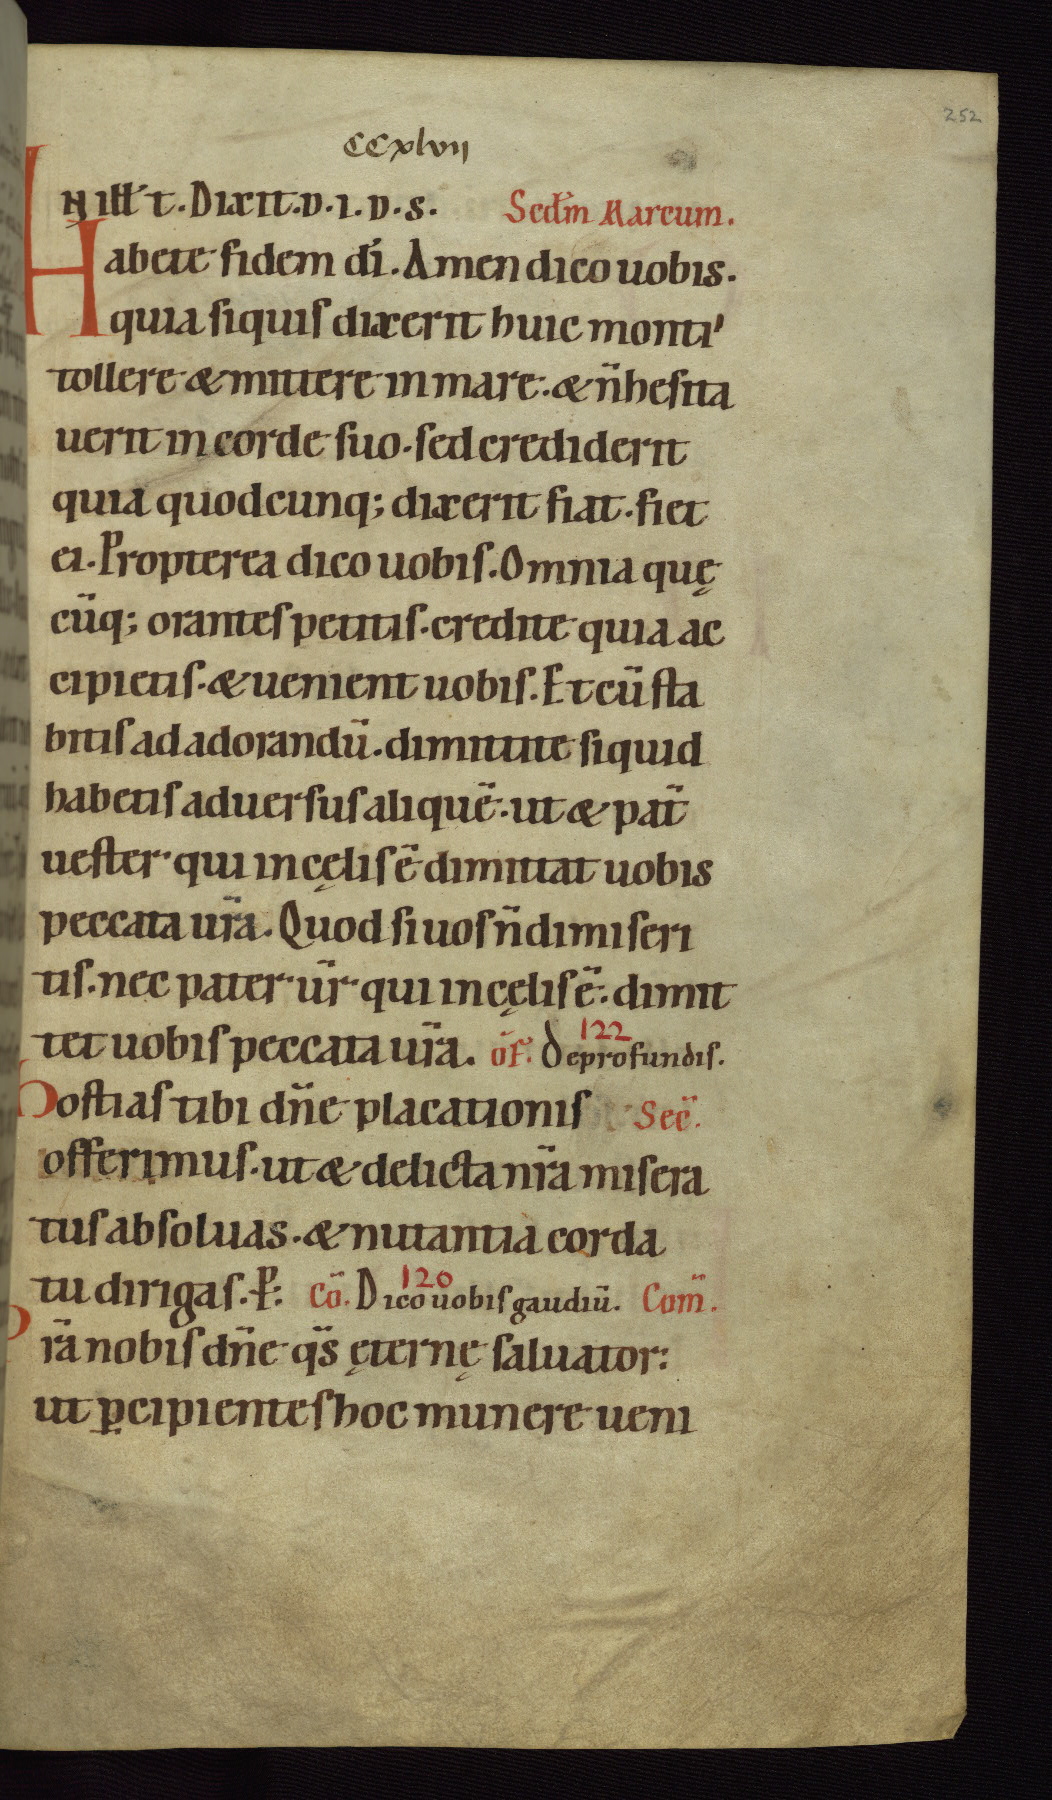 252
CCxlvii
IN ill̅ t̅. Dixit. d. i. d. s. Scd̅m Marcum.
Habete fidem dī. Amen dico uobis.
quia siquis dixerit huic monti
tollere & mittere in mare. & n̄ hesita
uerit in corde suo. sed crediderit
quia quodcunq; dixerit fiat. fiet
ei. Propterea dico uobis. Omnia quę
cūq; orantes petitis. credite quia ac
cipietis. & uenient uobis. Et cū sta
bitis ad adorandū. dimittite siquid
habetis aduersus aliquē. ut & pat̄
uester qui in cęlis ē dimittat uobis
peccata ur̄a. Quod si uos n̄ dimiseri
tis. nec pater ur̄ qui in cęlis ē. dimit
tet uobis peccata ur̄a. of̄. De profundis. 122
Hostias tibi dn̄e placationis Sec̄.
offerimus. ut & delicta nr̄a misera
tus absoluas. & nutantia corda
tu dirigas. P. Cō. Dico uobis gaudiū. 120 Com̄.
Pr̄a nobis dn̄e qs̄ ęternę saluator:
ut p̲cipientes hoc munere ueni